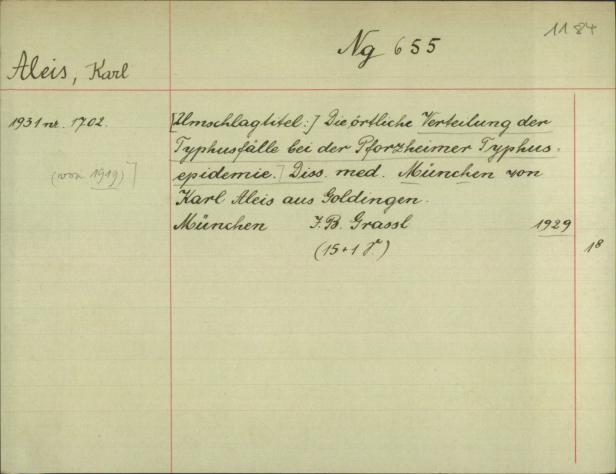 1184
Ng 655
Aleis, Karl
1931 nr. 1702.
(von 1919)]
[Umschlagtitel:] Die örtliche Verteilung der
Typhusfälle bei der Pforzheimer Typhus-
epidemie.] Diss. med. München von
Karl Aleis aus Goldingen.
München J. B. Grassl 1929
(15+1 S.)
18